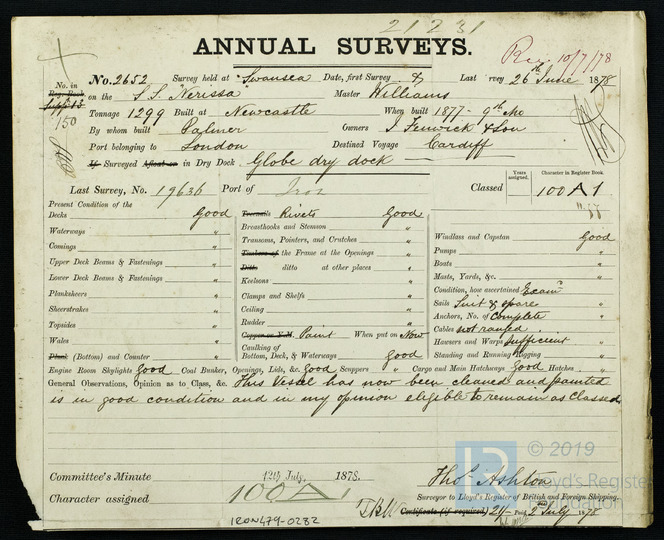 21231
ANNUAL SURVEYS.
10/7/78
No. 2652 Survey held at Swansea Date, first Survey & Last Survey 26th June 1878
No. in Reg. Book
Supp. 13
150
on the S.S. "Nerissa" Master Williams
Tonnage 1299 Built at Newcastle When built 1877 - 9th Mo
By whom built Palmer Owners J Fenwick & Son
Port belonging to London Destined Voyage Cardiff
If Surveyed Afloat or in Dry Dock Globe dry dock
Last Survey, No. 19636 Port of Iron Classed Years assigned. Character in Register Book. 100 A 1
Present Condition of the
Decks Good
Waterways "
Comings "
Upper Deck Beams & Fastenings "
Lower Deck Beams & Fastenings "
Planksheers "
Sheerstrakes "
Topsides "
Wales "
Plank (Bottom) and Counter "
Treenails Rivets Good
Breasthooks and Stemson "
Transoms, Pointers, and Crutches "
Timbers of the Frame at the Openings "
Ditto ditto at other places "
Keelsons "
Clamps and Shelfs "
Ceiling "
Rudder "
Copper or Y.M. Paint When put on Now
Caulking of
Bottom, Deck, & Waterways Good
Windlass and Capstan Good
Pumps "
Boats "
Masts, Yards, &c. "
Condition, how ascertained Examd
Sails Suit & spare "
Anchors, No. of Complete "
Cables not ranged "
Hawsers and Warps sufficient "
Standing and Running Rigging "
Engine Room Skylights Good Coal Bunker, Openings, Lids, &c. Good Scuppers " Cargo and Main Hatchways Good Hatches "
General Observations, Opinion as to Class, &c. This Vessel has now been cleaned and painted
is in good condition and in my opinion eligible to remain as Classed
Committee's Minute 12th July, 1878.
Character assigned 100 A 1
Thos Ashton
Surveyor to Lloyd's Register of British and Foreign Shipping.
Certificate (if required) 21/- Paid 2nd July 1878
IRON479-0282
© 2019
Lloyd's Register
Foundation